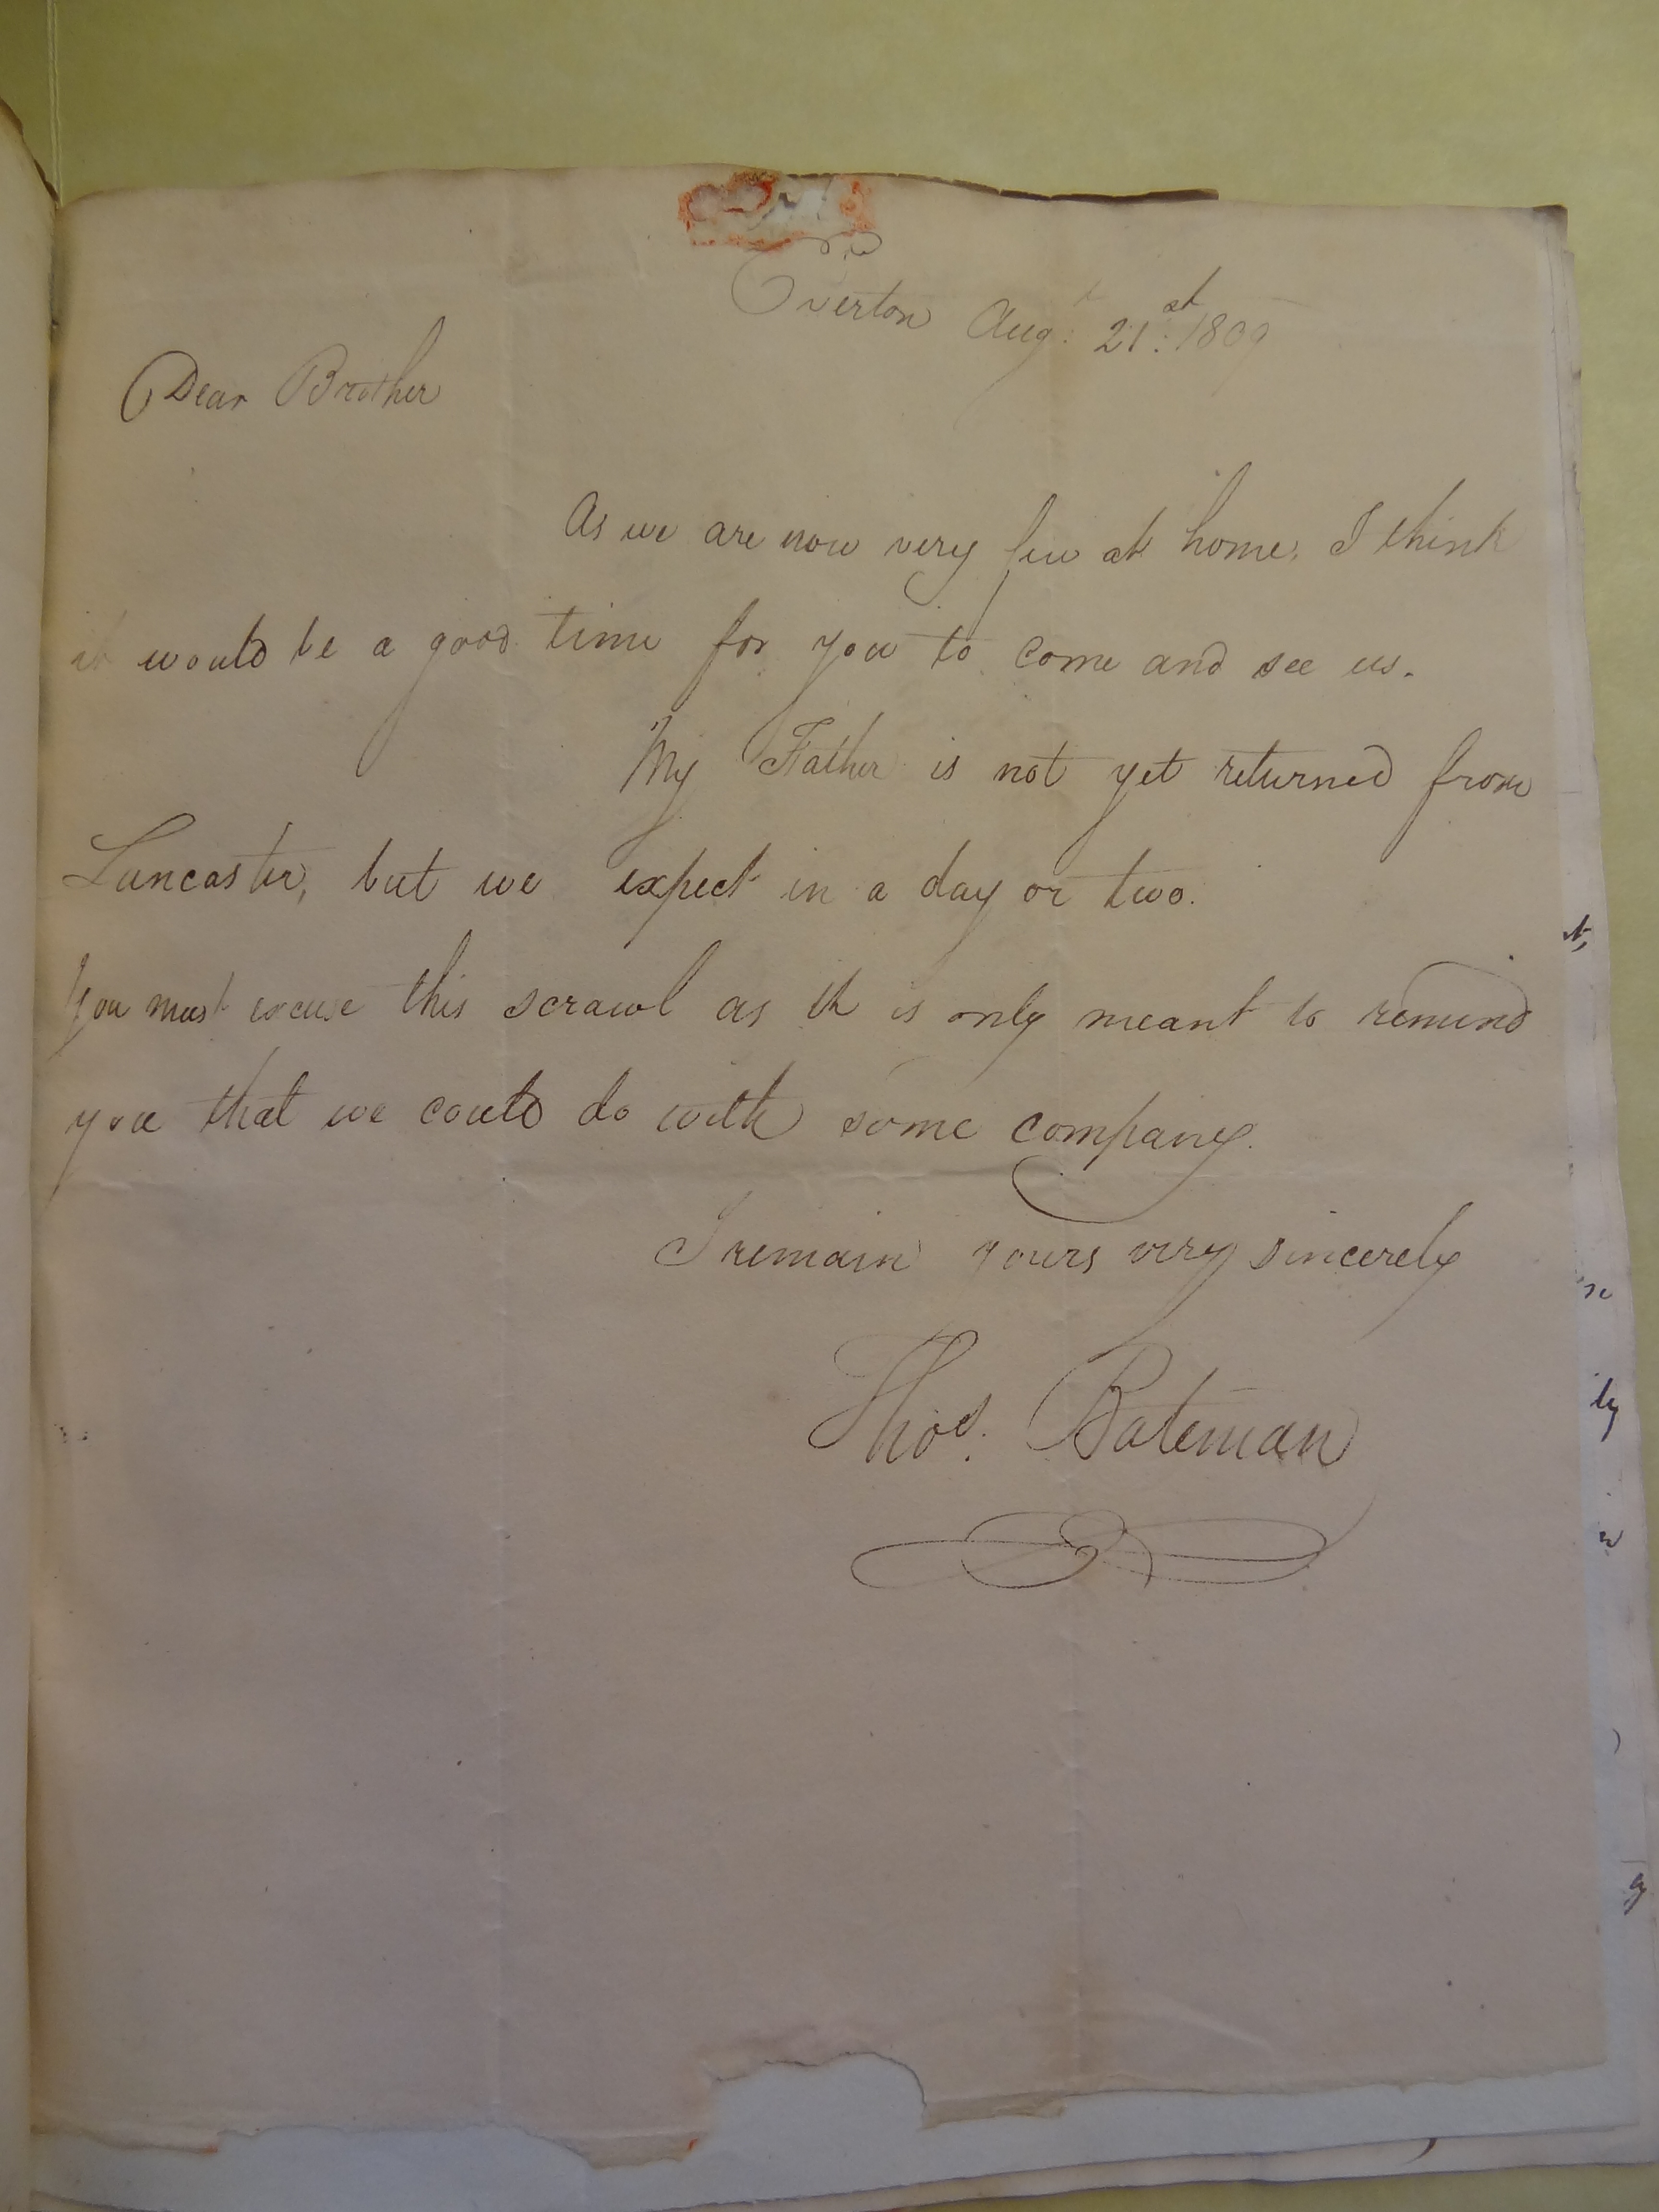 Overton Augt: 21st: 1809
Dear Brother
As we are now very few at home, I think
it would be a good time for you to come and see us.
My Father is not yet returned from
Lancaster, but we expect in a day or two.
You must excuse this scrawl as it is only meant to remind
you that we could do with some company.
I remain yours very sincerely
Thos. Bateman